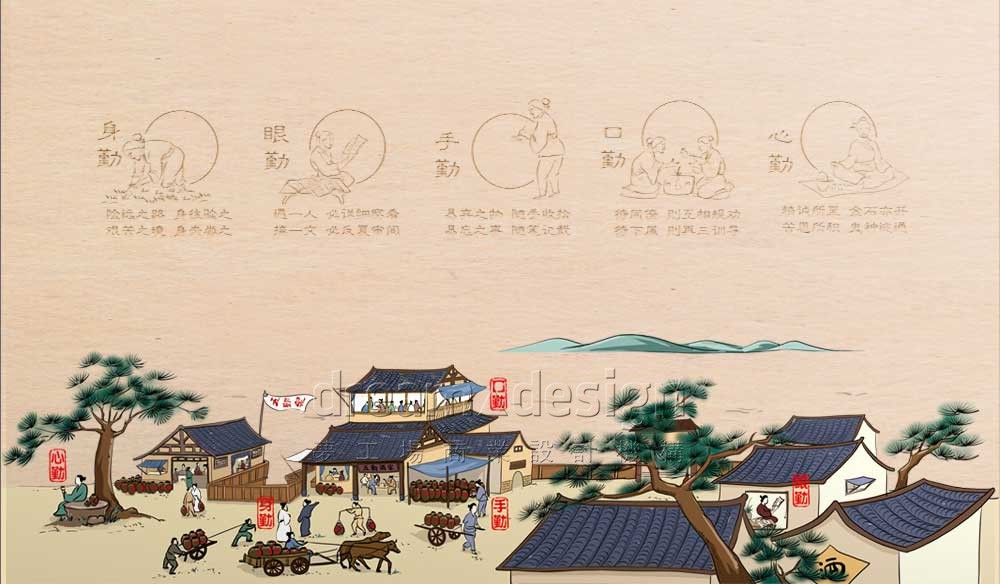 身勤
险远之路 身往验之
艰苦之境 身亲尝之
眼勤
遇一人 必详细察看
接一文 必反复审阅
手勤
易弃之物 随手收拾
易忘之事 随笔记载
口勤
待同僚 则互相规劝
待下属 则再三训导
心勤
精诚所至 金石亦开
苦思所积 鬼神亦通
口勤
design
心勤
眼勤
身勤
手勤
酒